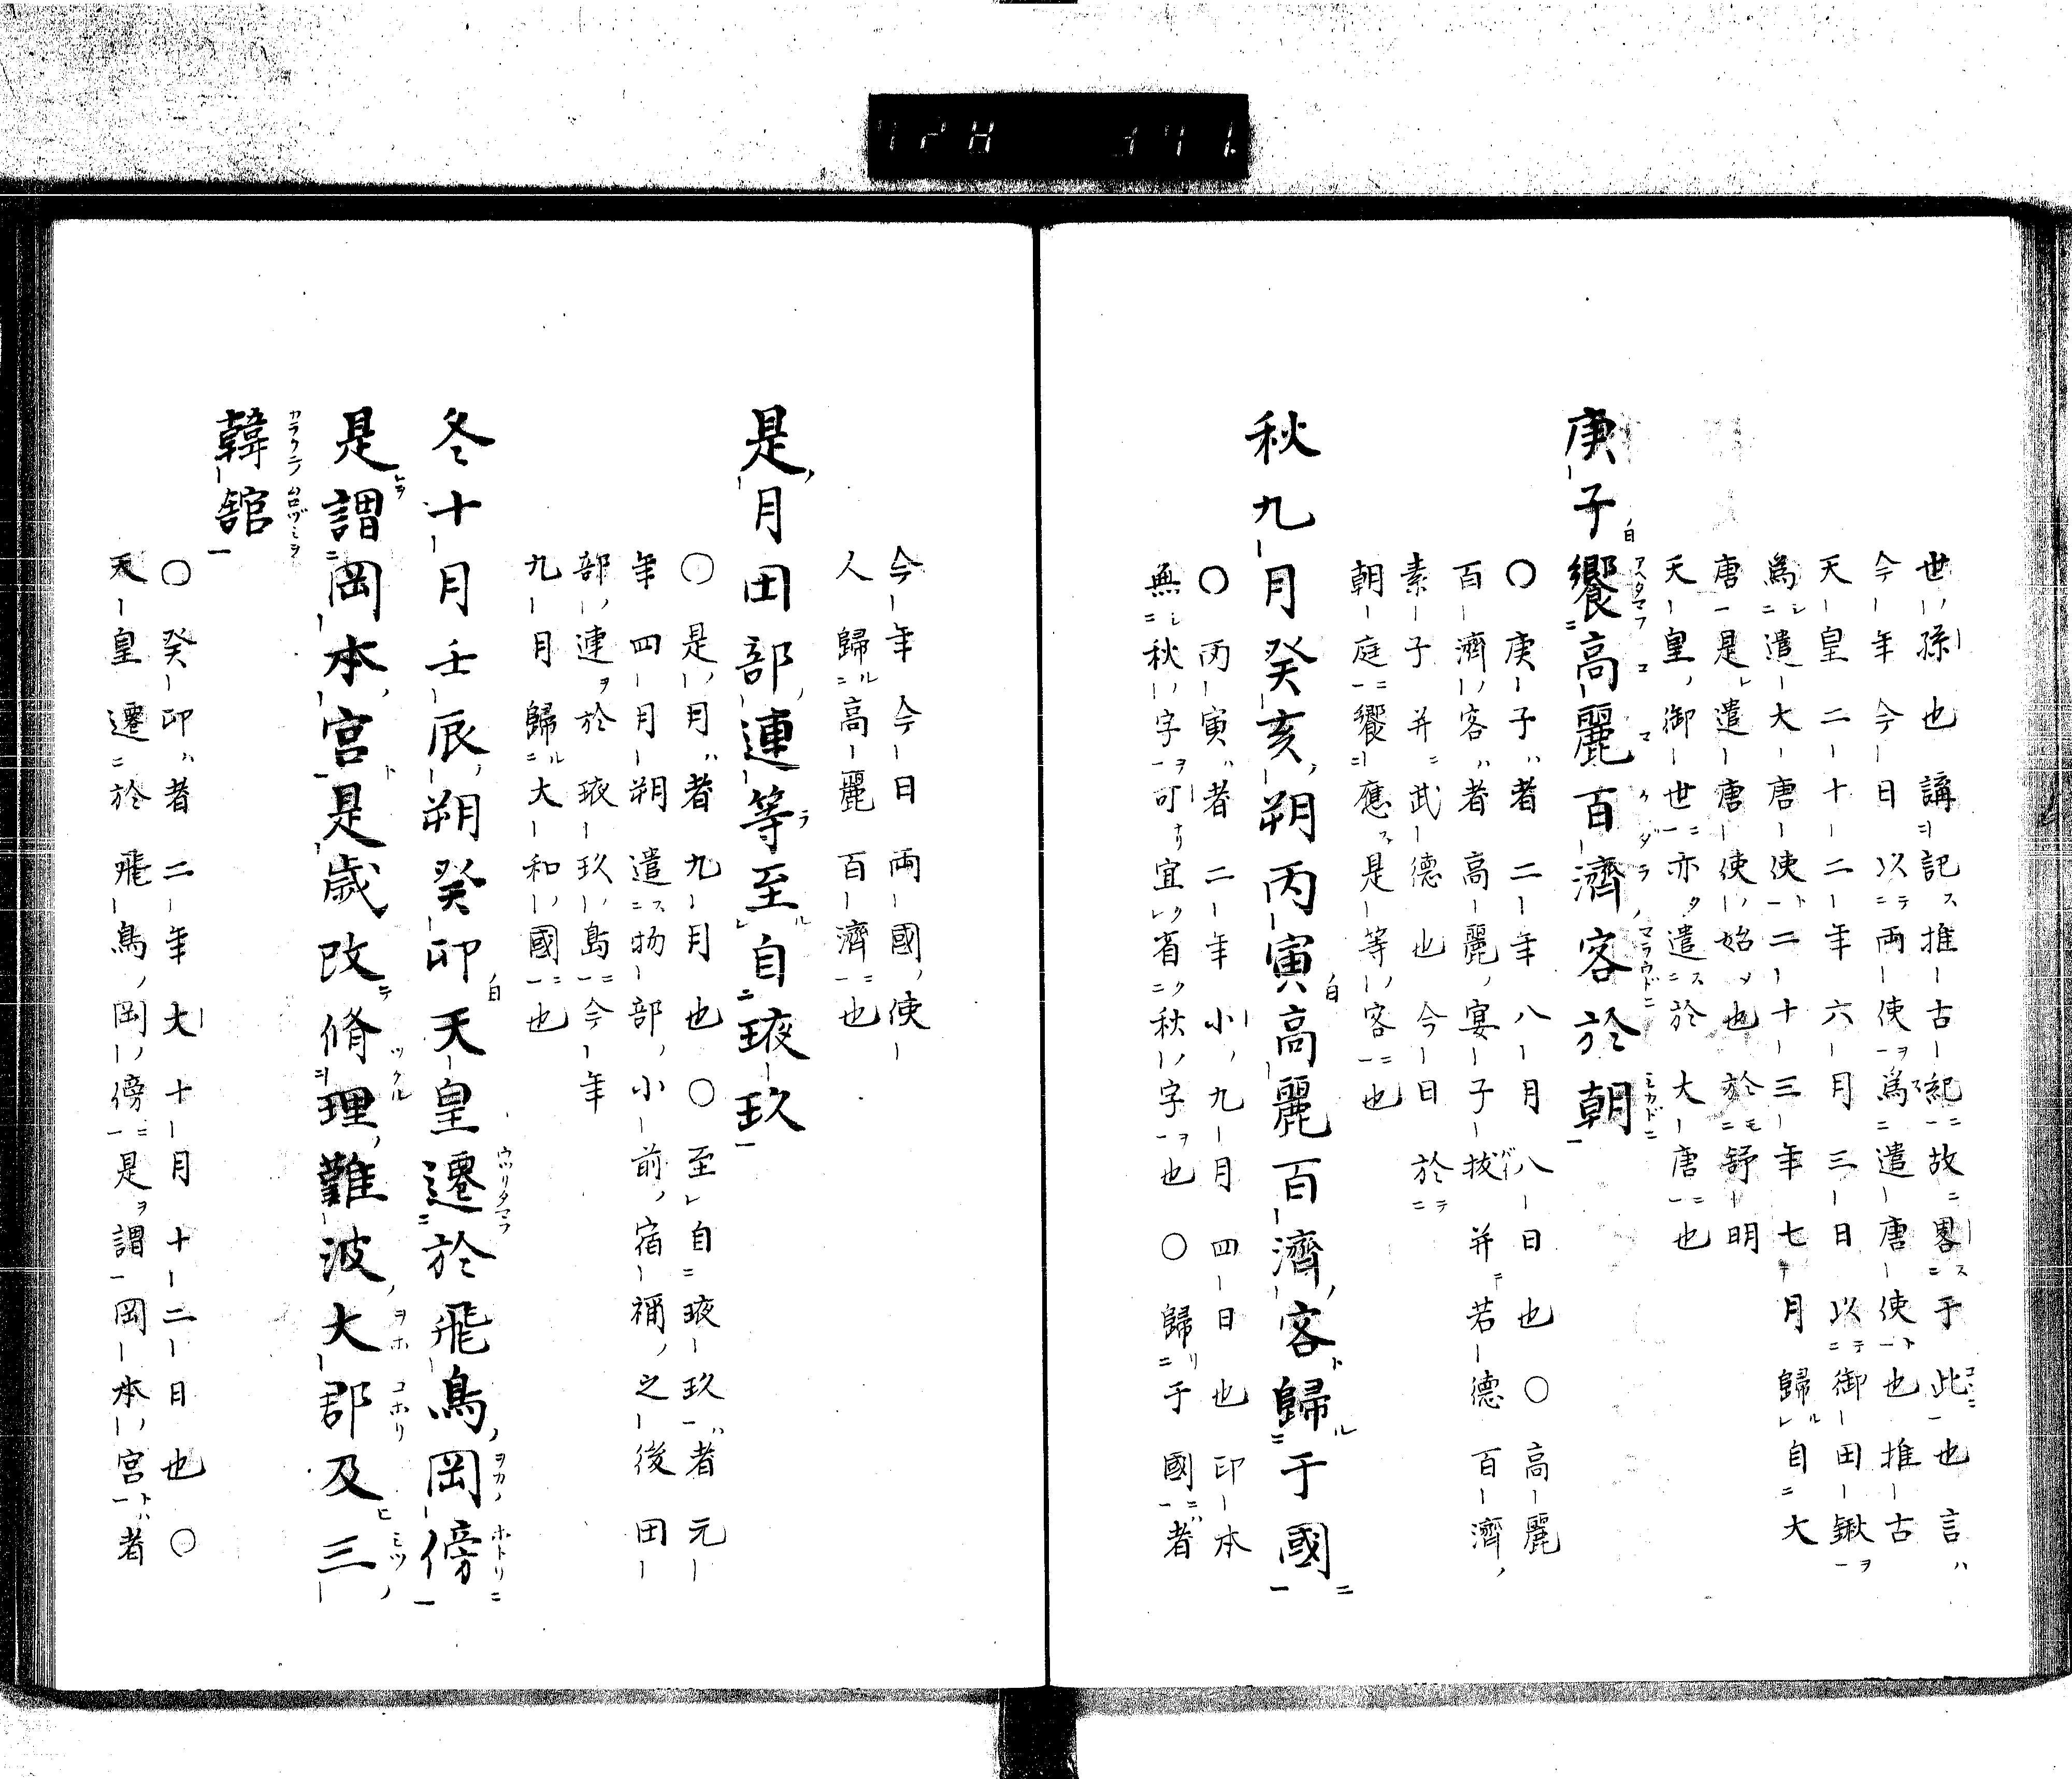 世孫也講記推古紀故畧于此也言
今年今日以両使爲遣唐使也推古
天皇二十二年六月三日以御田鍬
爲遣大唐使二十三年七月歸自大
唐是遣唐使始也於舒明
天皇御世亦遣於大唐也
庚子饗高麗百濟客於朝
〇庚子者二年八月八日也〇高麗
百濟客者高麗宴子拔并若德百濟
素子并武德也今日於
朝庭饗應是等客也
秋九月癸亥朔丙寅高麗百濟客歸于國
〇丙寅者二年小九月四日也印本
無秋字可宜省秋字也〇歸于國者
今年今日両國使
人歸高麗百濟也
是月田部連等至自掖玖
〇是月者九月也〇至自掖玖者元
年四月朔遣物部小前宿禰之後田
部連於掖玖島今年
九月歸大和國也
冬十月壬辰朔癸卯天皇遷於飛鳥岡傍
是謂岡本宮是歳改脩理難波大郡及三
韓館
〇癸卯者二年大十月十二日也〇
天皇遷於飛鳥岡傍是謂岡本宮者